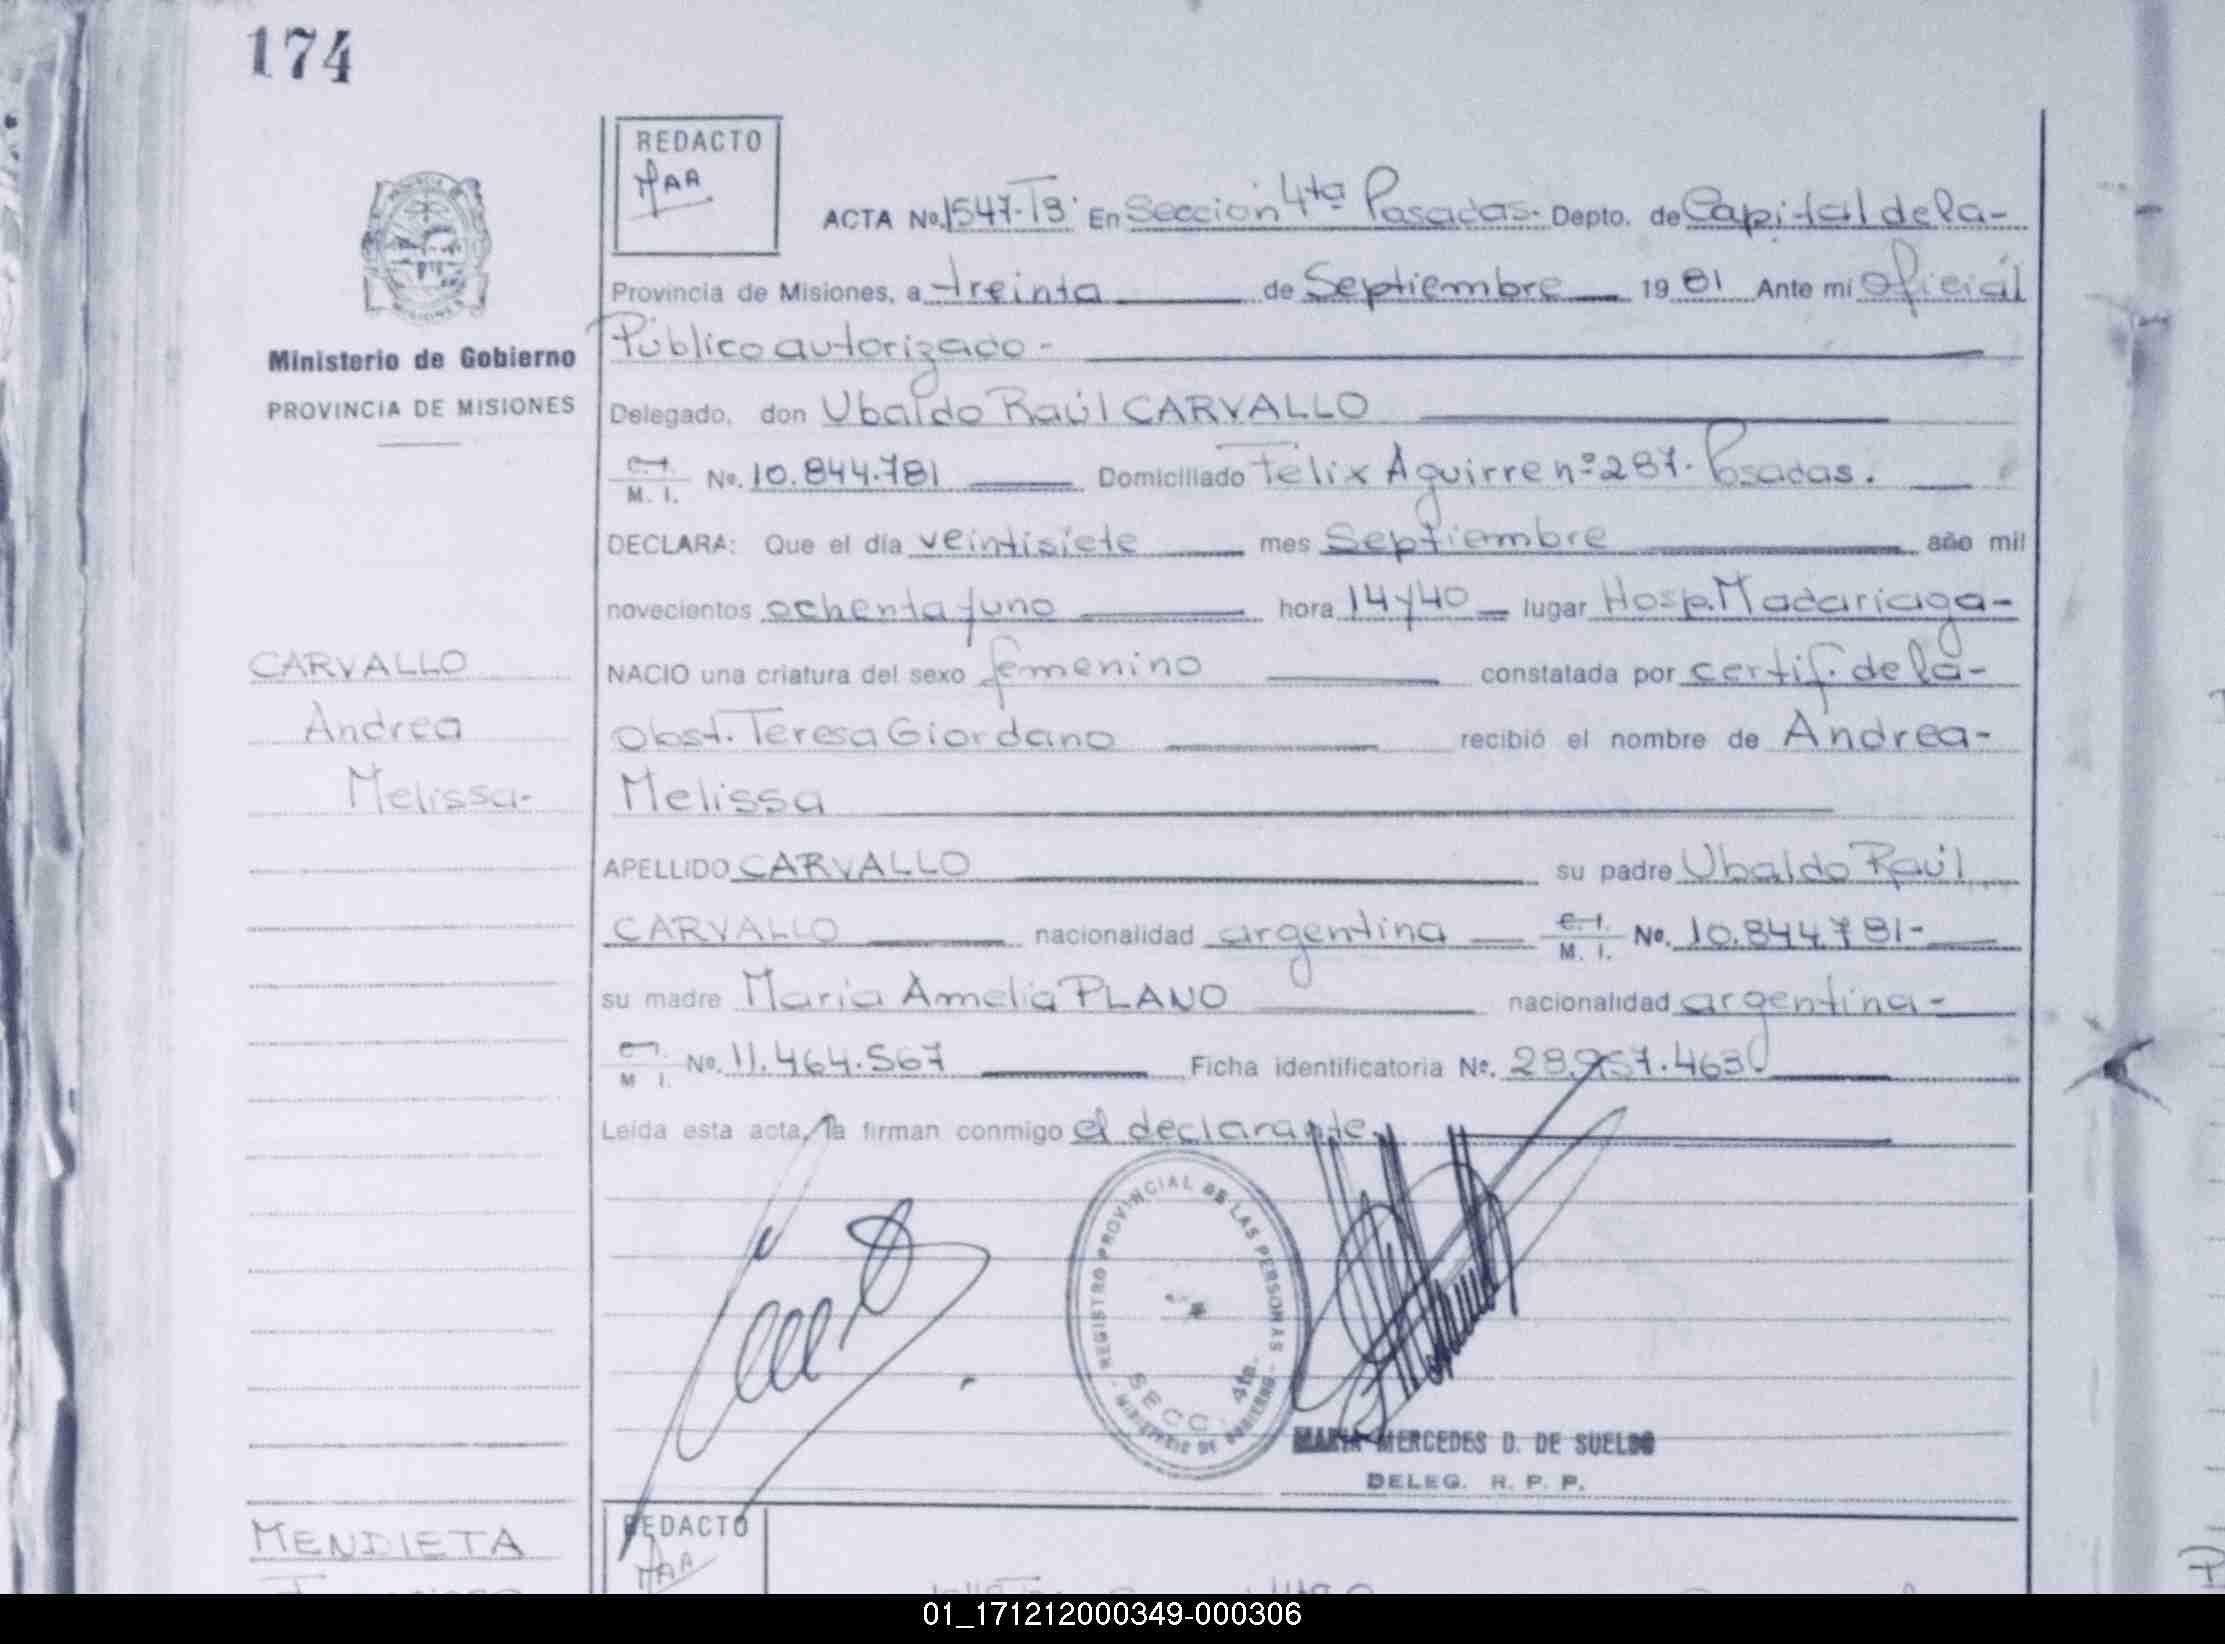 174
REDACTO
MAA
ACTA No. 1547-T3. En Sección 4ta Posadas. Depto. de Capital de la-
Provincia de Misiones, a treinta de Septiembre 1981 Ante mi Oficial
Público autorizado -
Ministerio de Gobierno
PROVINCIA DE MISIONES
Delegado, don Ubaldo Raúl CARVALLO
C. I.
M. I. No. 10.844.781 Domiciliado Félix Aguirre nº 287. Posadas.
DECLARA: Que el día veintisiete mes Septiembre año mil
novecientos ochenta y uno hora 14 y 40 lugar Hosp. Madariaga-
CARVALLO
Andrea
Melissa-
NACIO una criatura del sexo femenino constatada por certif. de la-
Obst. Teresa Giordano recibió el nombre de Andrea-
Melissa
APELLIDO CARVALLO su padre Ubaldo Raúl
CARVALLO nacionalidad argentina C. I. M. I. No. 10.844.781-
su madre María Amelia PLANO nacionalidad argentina-
M. I. No. 11.464.567 Ficha identificatoria No. 28.957.463
Leída esta acta, la firman conmigo el declarante.
REGISTRO PROVINCIAL DE LAS PERSONAS
SECC. 4ta.
MINISTERIO DE GOBIERNO
MARIA MERCEDES D. DE SUELDO
DELEG. R. P. P.
REDACTO
MAA
MENDIETA
01_171212000349-000306